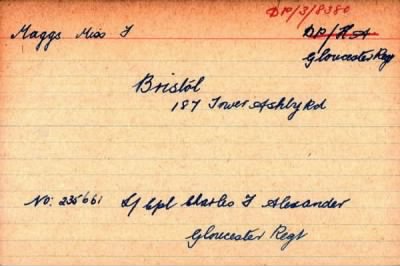 DP/3/8380
Maggs Miss F DP/R A
Gloucester Regt
Bristol
187 Lower Ashby Rd
No: 235661 L/Cpl Charles F Alexander
Gloucester Regt